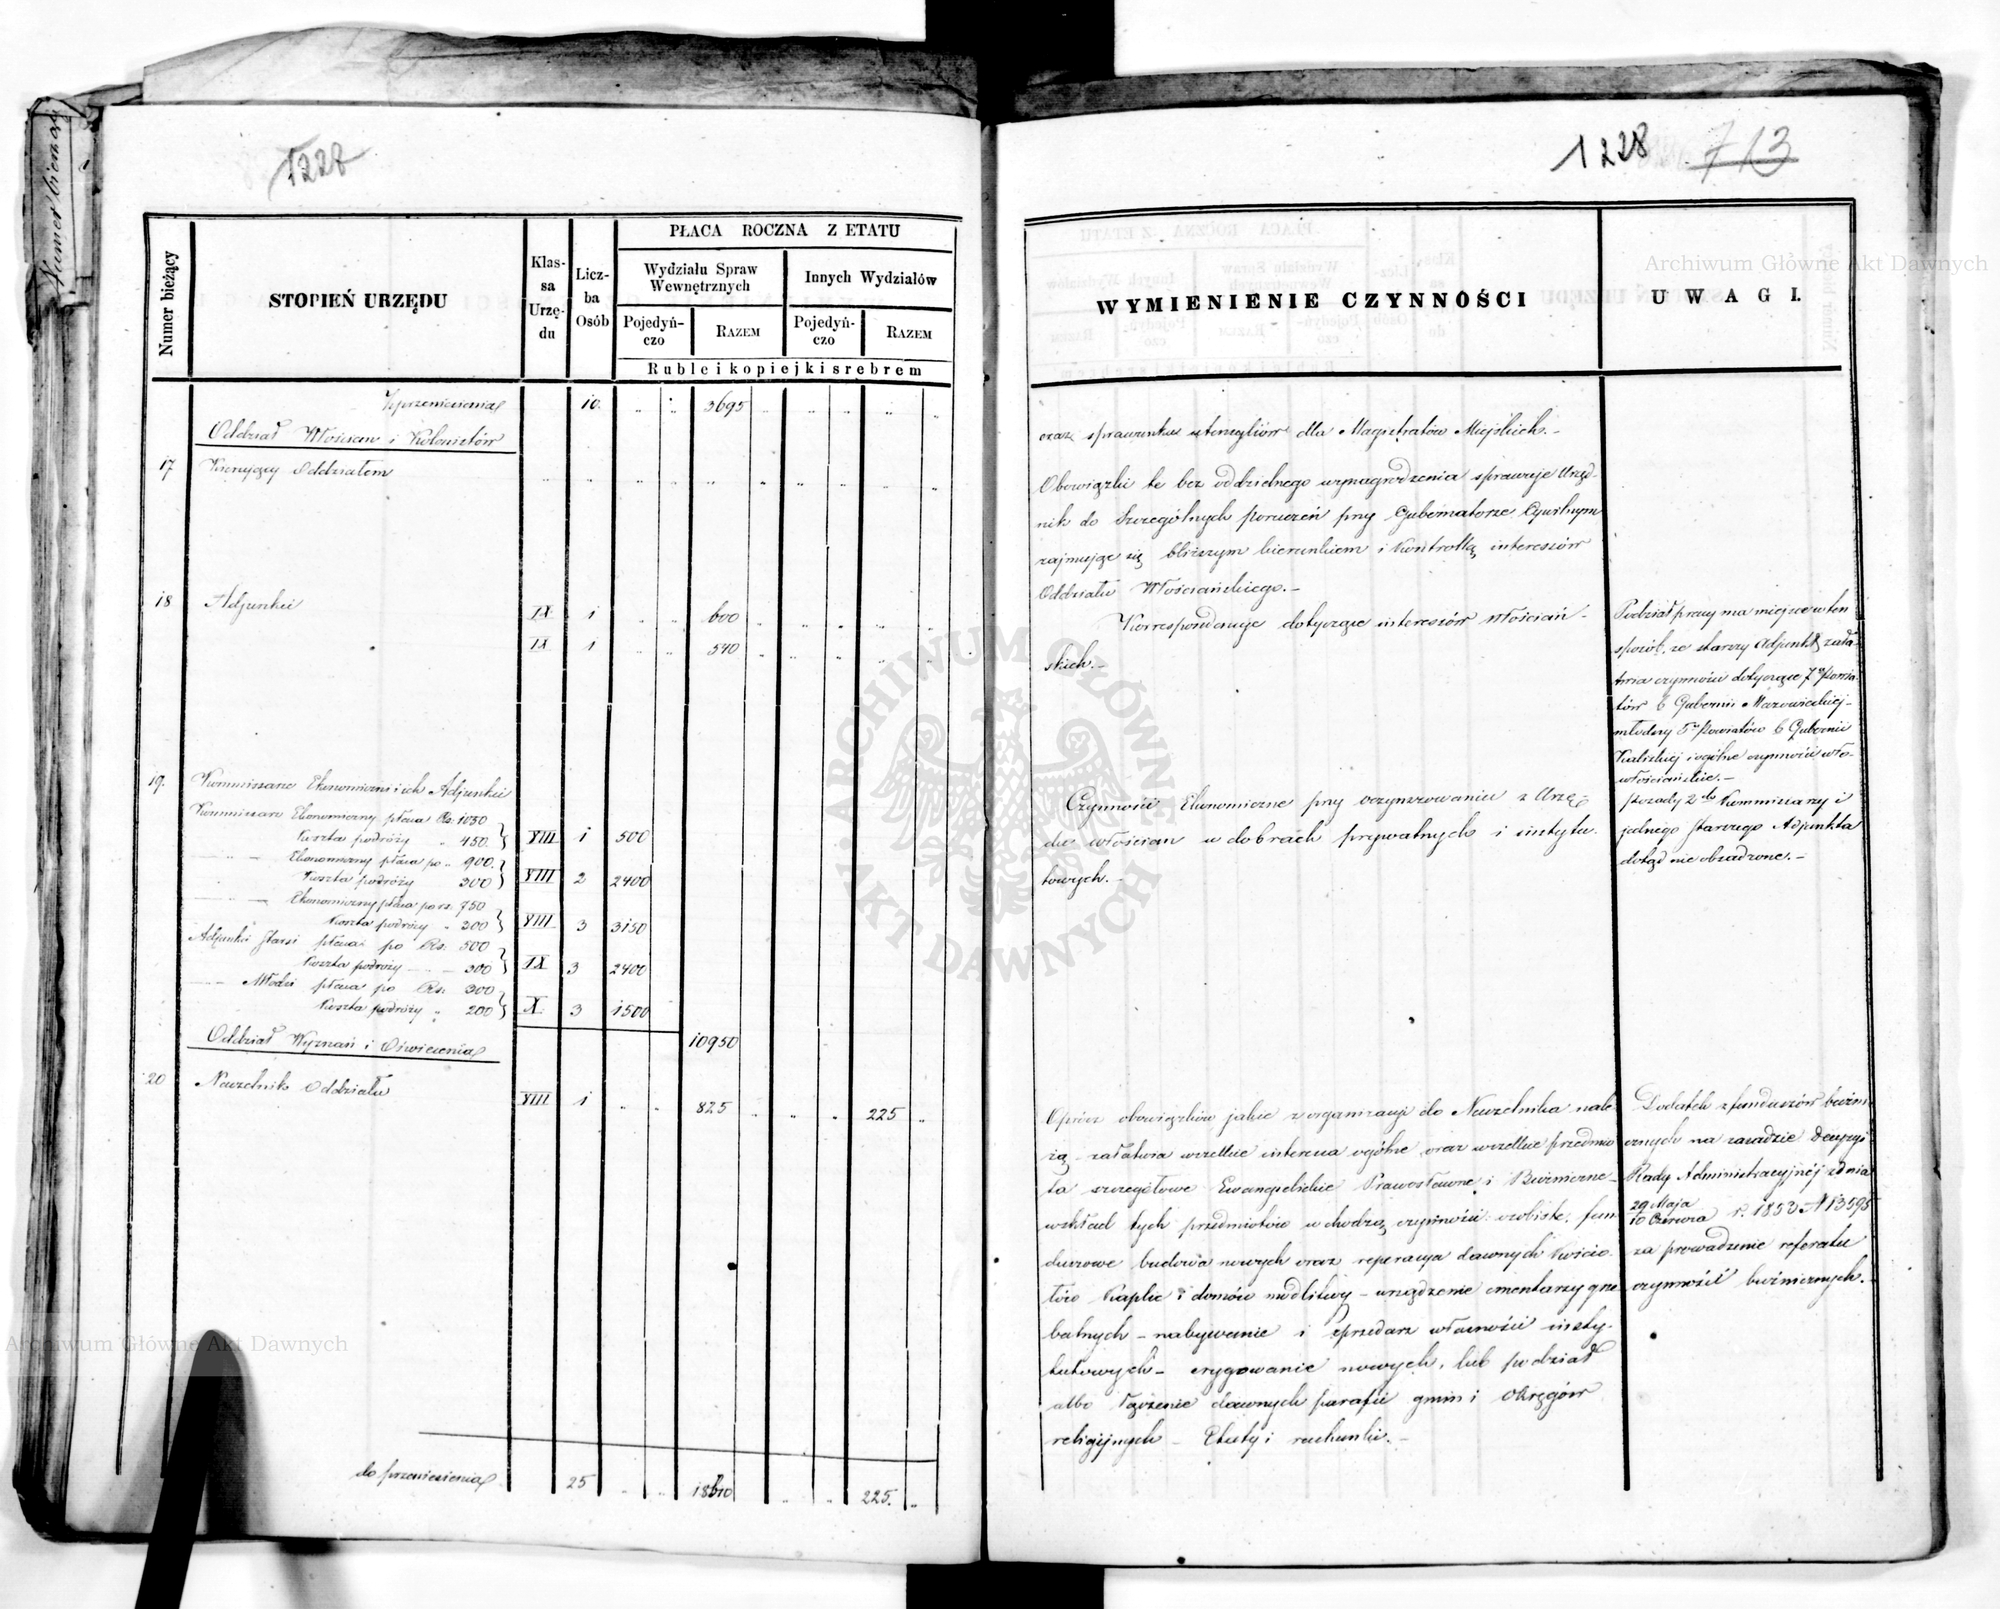 Numer bieżący
1228
Numer bieżący
STOPIEŃ URZĘDU
Klas-
sa
Urzę-
du
Licz-
ba
Osób
PŁACA ROCZNA Z ETATU
Wydziału Spraw
Wewnętrznych
Innych Wydziałów
Pojedyń-
czo
RAZEM
Pojedyń-
czo
RAZEM
Ruble i kopiejki srebrem
Z przeniesienia 10. " " 3695 " " " " "
Oddział Włościan i Kolonistów
17 Kierujący Oddziałem " " " " " " " " "
18 Adjunkci IX 1 " " 600 " " " " "
IX 1 " " 540 " " " " "
19. Kommissarze Ekonomiczni i ich Adjunkci
Kommissarz Ekonomiczny płaca Rs. 1050
Koszta podróży " 450. VIII 1 500
" — Ekonomiczny płaca po " 900.
Koszta podróży 300 VIII 2 2400
" — Ekonomiczny płaca po rs. 750
Koszta podróży " 300 VIII 3 3150
Adjunkci Starsi płaca po Rs. 500
Koszta podróży — 300 IX 3 2400
— Młodsi płaca po Rs. 300
Koszta podróży " 200 X. 3 1500
10950
Oddział Wyznań i Oświecenia
20 Naczelnik Oddziału VIII 1 " " 825 " " " 225 "
do przeniesienia 25 " " " " 225. "
1228 713
WYMIENIENIE CZYNNOŚCI
UWAGI.
oraz sprawunku utensyliów dla Magistratów Miejskich.—
Obowiązki te bez oddzielnego wynagrodzenia sprawuje Urzęd-
nik do Szczególnych poruczeń przy Gubernatorze Cywilnym
zajmując się bliższym kierunkiem i Kontrollą interessów
Oddziału Włościańskiego.—
Korrespondencje dotyczące interesów Włościań-
skich.—
Podział pracy ma miejsce w ten
sposób, że starszy Adjunkt zała-
twia czynności dotyczące 7u Powia-
tów b Gubernii Mazowieckiej—
młodszy 5u Powiatów b Gubernii
Kaliskiej i ogólne czynności wło-
włościańskie.—
Czynności Ekonomiczne przy oczynszowaniu z Urzę-
du włościan w dobrach prywatnych i instytu-
towych.—
Posady 2ch Kommissarzy i
jednego Starszego Adjunkta
dotąd nie obsadzone.—
Oprócz obowiązków jakie z organizacyi do Naczelnika nale-
żą — załatwia wszelkie interessa ogólne oraz wszelkie przedmio-
ta szczegółowe Ewangielickie Prawosławne i Bóźniczne—
wskład tych przedmiotów wchodzą czynności: osobiste, fun-
duszowe budowa nowych oraz reperacya dawnych Kościo-
łów Kaplic i domów modlitwy — urządzenie cmentarzy grze-
balnych — nabywanie i sprzedarz własności insty-
tutowych — erygowanie nowych, lub podział
albo łączenie dawnych parafii gmin i okręgów
religijnych — Etaty i rachunki.—
Dodatek z funduszów bóźni-
cznych na zasadzie decyzyi
Rady Administracyjnéj z dnia
29 Maja
10 Czerwca r. 1853 N 13595
za prowadzenie referatu
czynności bóźnicznych.
Archiwum Główne Akt Dawnych
ARCHIWUM GŁÓWNE
AKT DAWNYCH
Archiwum Główne Akt Dawnych